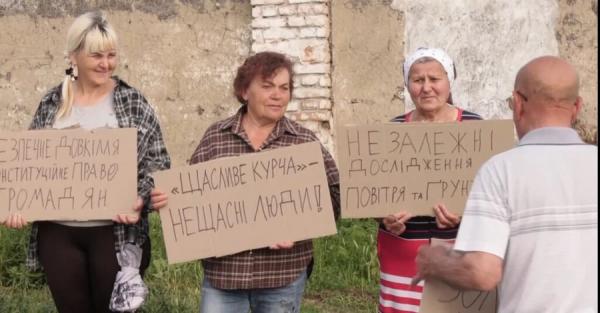 ЕЗПЕЧНЕ ДОВКІЛЛЯ
НСТИТУЦІЙНЕ ПРАВО
ГРОМАДЯН
«ЩАСЛИВЕ КУРЧА»–
НЕЩАСНІ ЛЮДИ!
НЕЗАЛЕЖНІ
ДОСЛІДЖЕННЯ
ПОВІТРЯ ТА ҐРУН